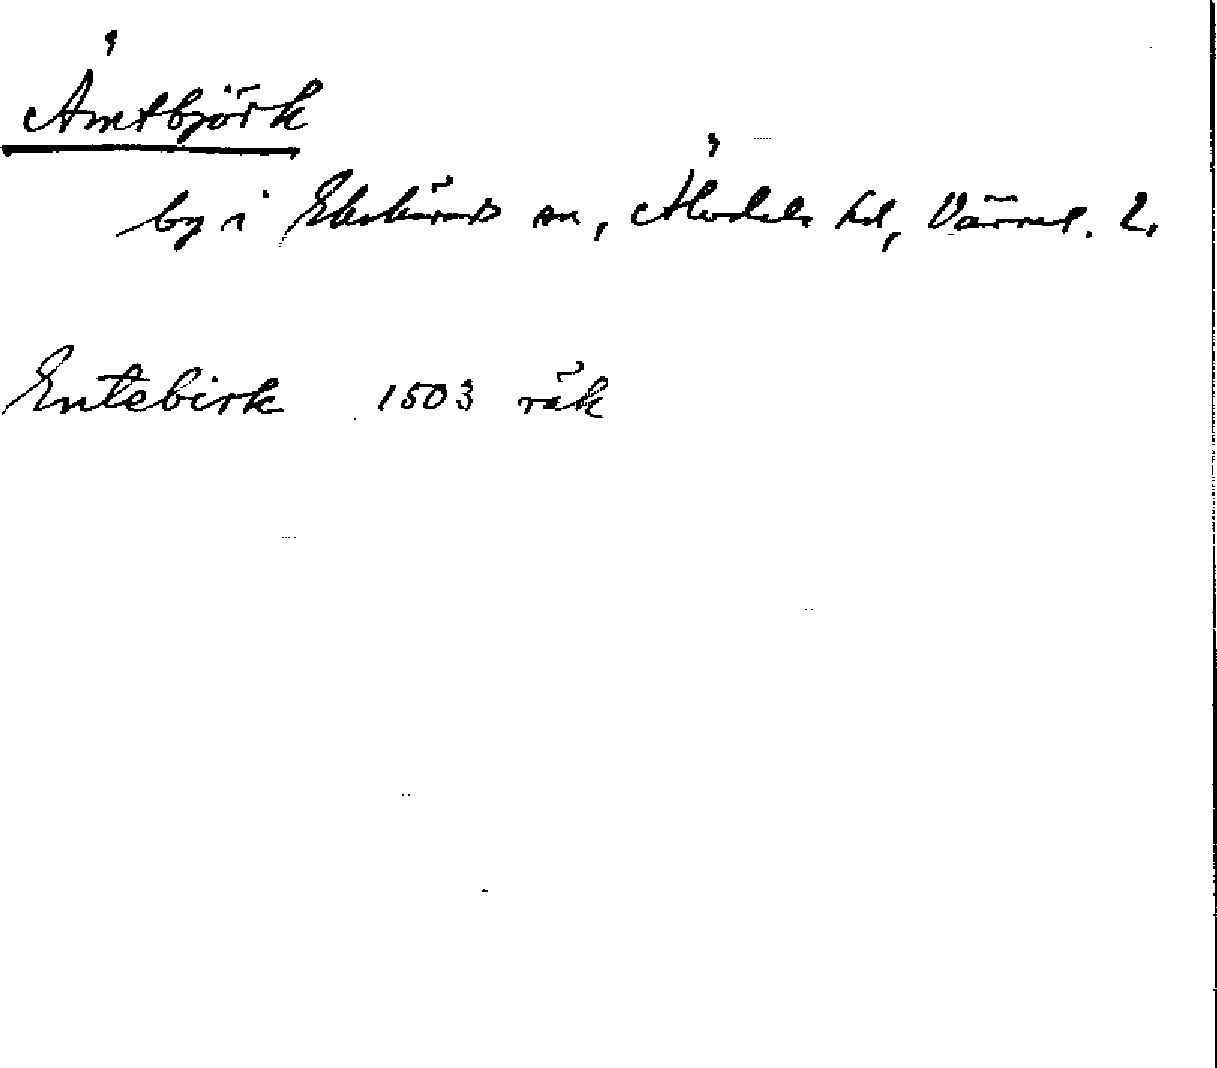 Åmtbjörk
by i Ekshärads sn, Älvdals hd, Värml. l.
Entebirk 1503 räk